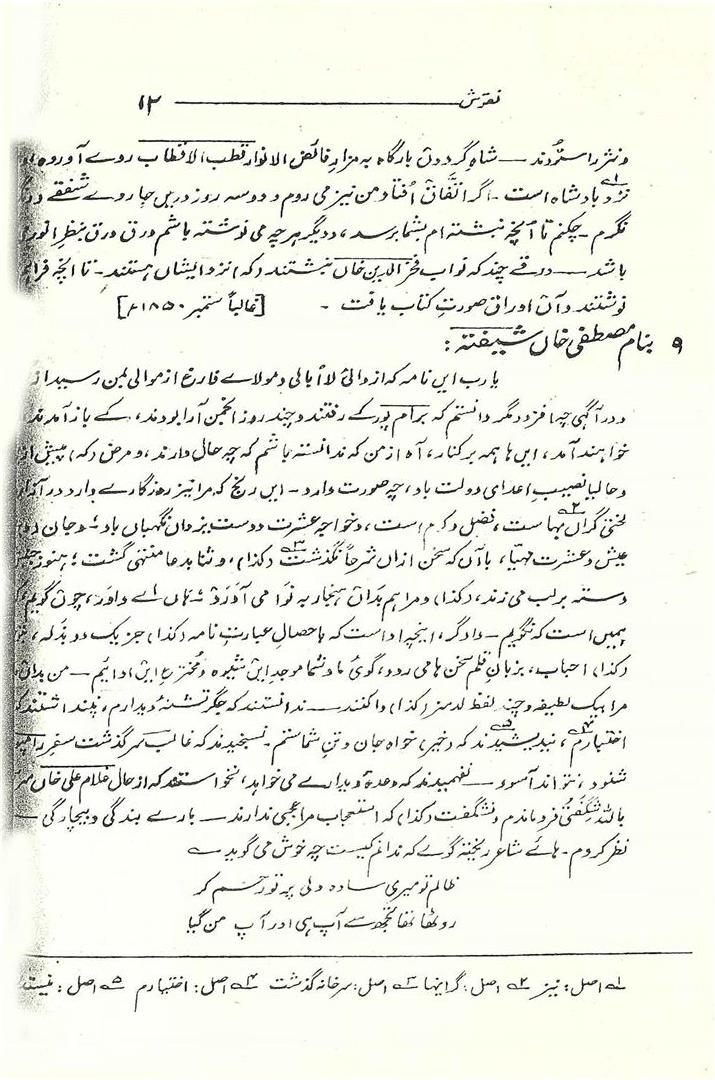 نقوش ———— ۱۲
ونثر راستودند — شاہِ گردوں بارگاہ بہ مزارِ فائض الانوار قطب الاقطاب روے آوردہ
نزد بادشاہ است ۔ اگر اتفاق اُفتاد من نیز می روم و دو سہ روز دریں جا روے شفقے
نگرم ۔ چکنم تا آنچہ نبشتہ ام بشما برسد ، و دیگر ہر چہ می نوشتہ باشم ورق ورق بنظرِ انور
باشد — ورقے چند کہ نواب فخرالدین خاں نبشتند (کہ) نزدِ ایشاں ہستند ۔ تا آنچہ
نوشتند و آں اوراق صورتِ کتاب یافت ۔ [غالباً ستمبر ۱۸۵۰ء]
۹ بنام مصطفی خاں شیفتہ :
یا رب ایں نامہ کہ از والیِ لا اُبالی و مولاے فارغ از موالی بمن رسید
و در آگہی چہا فزود مگر دانستم کہ برام پور کے رفتند و چند روز انجمن آرا بودند ، کے باز آمدند
خواہند آمد ، ایں ہا ہمہ بر کنار ، آہ از من کہ ندانستہ باشم کہ چہ حال دارند ، و مرض (کہ) پیش
و حالیا نصیبِ اعداے دولت باد ، چہ صورت دارد ۔ ایں رنج کہ مرا نیز روزگارے دارد در
لختی گراں بہا است ، فضل و کرم است ، و خواجہ عشرت دوست یزداں نگہباں باد ؛ و جان
عیش و عشرت مہیّا ، با آں کہ سخن ازاں شرحاً نگذشت (کذا) ، و ثنا بدعا منتہی گشت ؛ ہنوز
دستہ بر لب می زند ، (کذا) و مرا ہم بداں ہنجار بہ نوا می آورد ؛ ہاں اے داور ، چوں گویم
ہمیں است کہ نگویم — دادگر ، اینچہ ادا است کہ باحصالِ عبارتِ نامہ (کذا) جز یک دو بذلہ ،
(کذا) احباب ، بزبانِ قلم سخن ہا می رود ، گوئی ما و شما موجدِ ایں شیوہ و مخترعِ ایں ادائیم — من
مرا بیک لطیفہ و چند لفظ (کذا) وا کنند — ندانستند کہ جگر تشنۂ دیدارم ، پنداشتند
اختیارم ، نیندیشیدند کہ دخیر ، خواہِ جان و تنِ شماستم ۔ نسنجیدند کہ غالب سرگذشتِ سفر را
شنود ، نتواند آسود — نفہمیدند کہ وعدۂ دیدارے می خواہد ، نخواستند کہ از حالِ غلام علی خاں
باللہ شگفتی فرو ماندم و نشگفت (کذا) کہ استعجاب مرا عجبی ندارند — بارے بندگی و بیچارگی —
نظر کردم ۔ ہائے شاعرِ ریختہ گوے کہ ندانم کیست چہ خوش می گوید ؎
ظالم تو میری سادہ دلی پر تو رحم کر
روٹھا تھا تجھ سے آپ ہی اور آپ من گیا
۱؎ اصل : نیز ۲؎ اصل : گرانبہا ۳؎ اصل : سرخانہ گذشت ۴؎ اصل : اختیارم ۵؎ اصل :